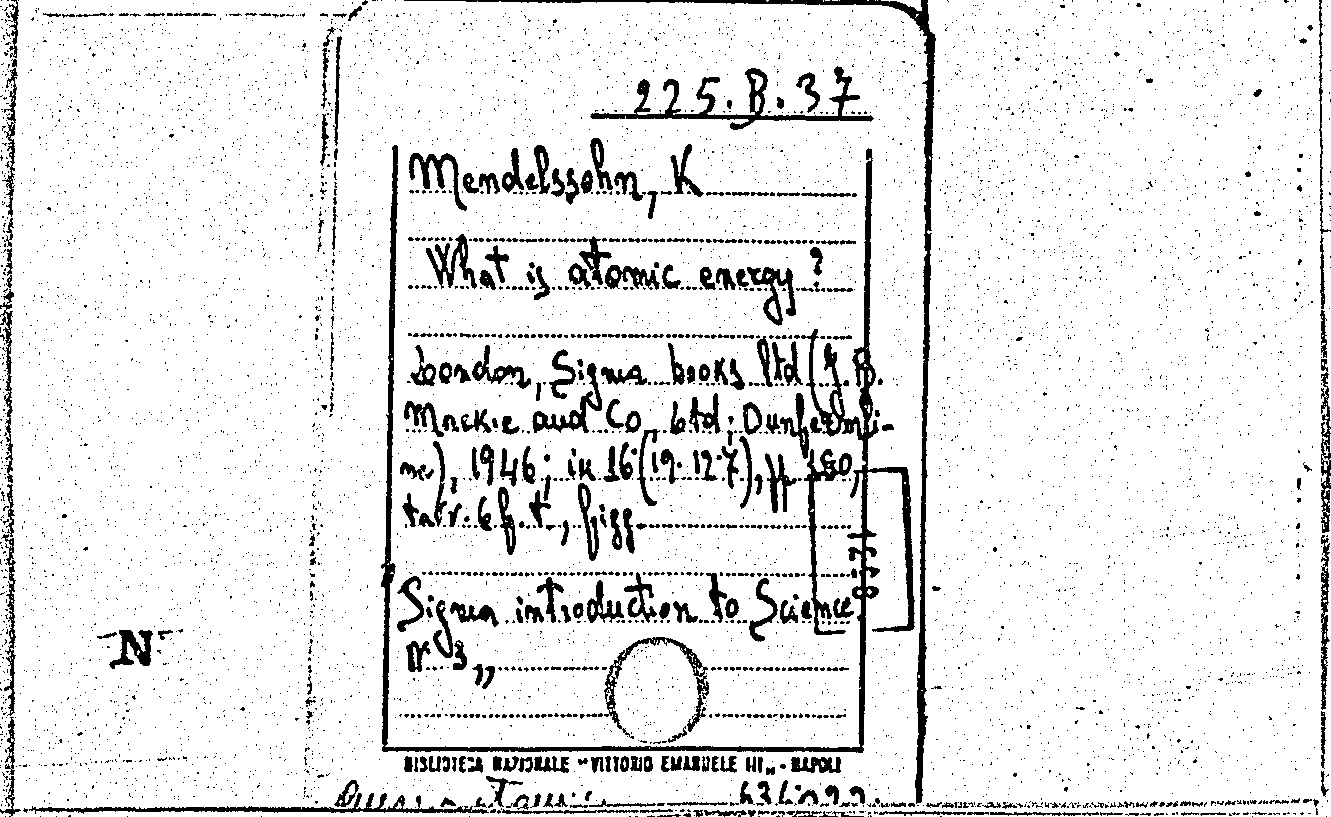 225.B.37
Mendelssohn, K
What is atomic energy?
London, Sigma books ltd (J.B.
Mackie and Co, Ltd; Dunfermli-
ne), 1946; in 16 (19.12.7), pp. 180,
tavv. 6 f.t., figg.
Sigma introduction to Science
N 3,,
N
BIBLIOTECA NAZIONALE "VITTORIO EMANUELE III„ - NAPOLI